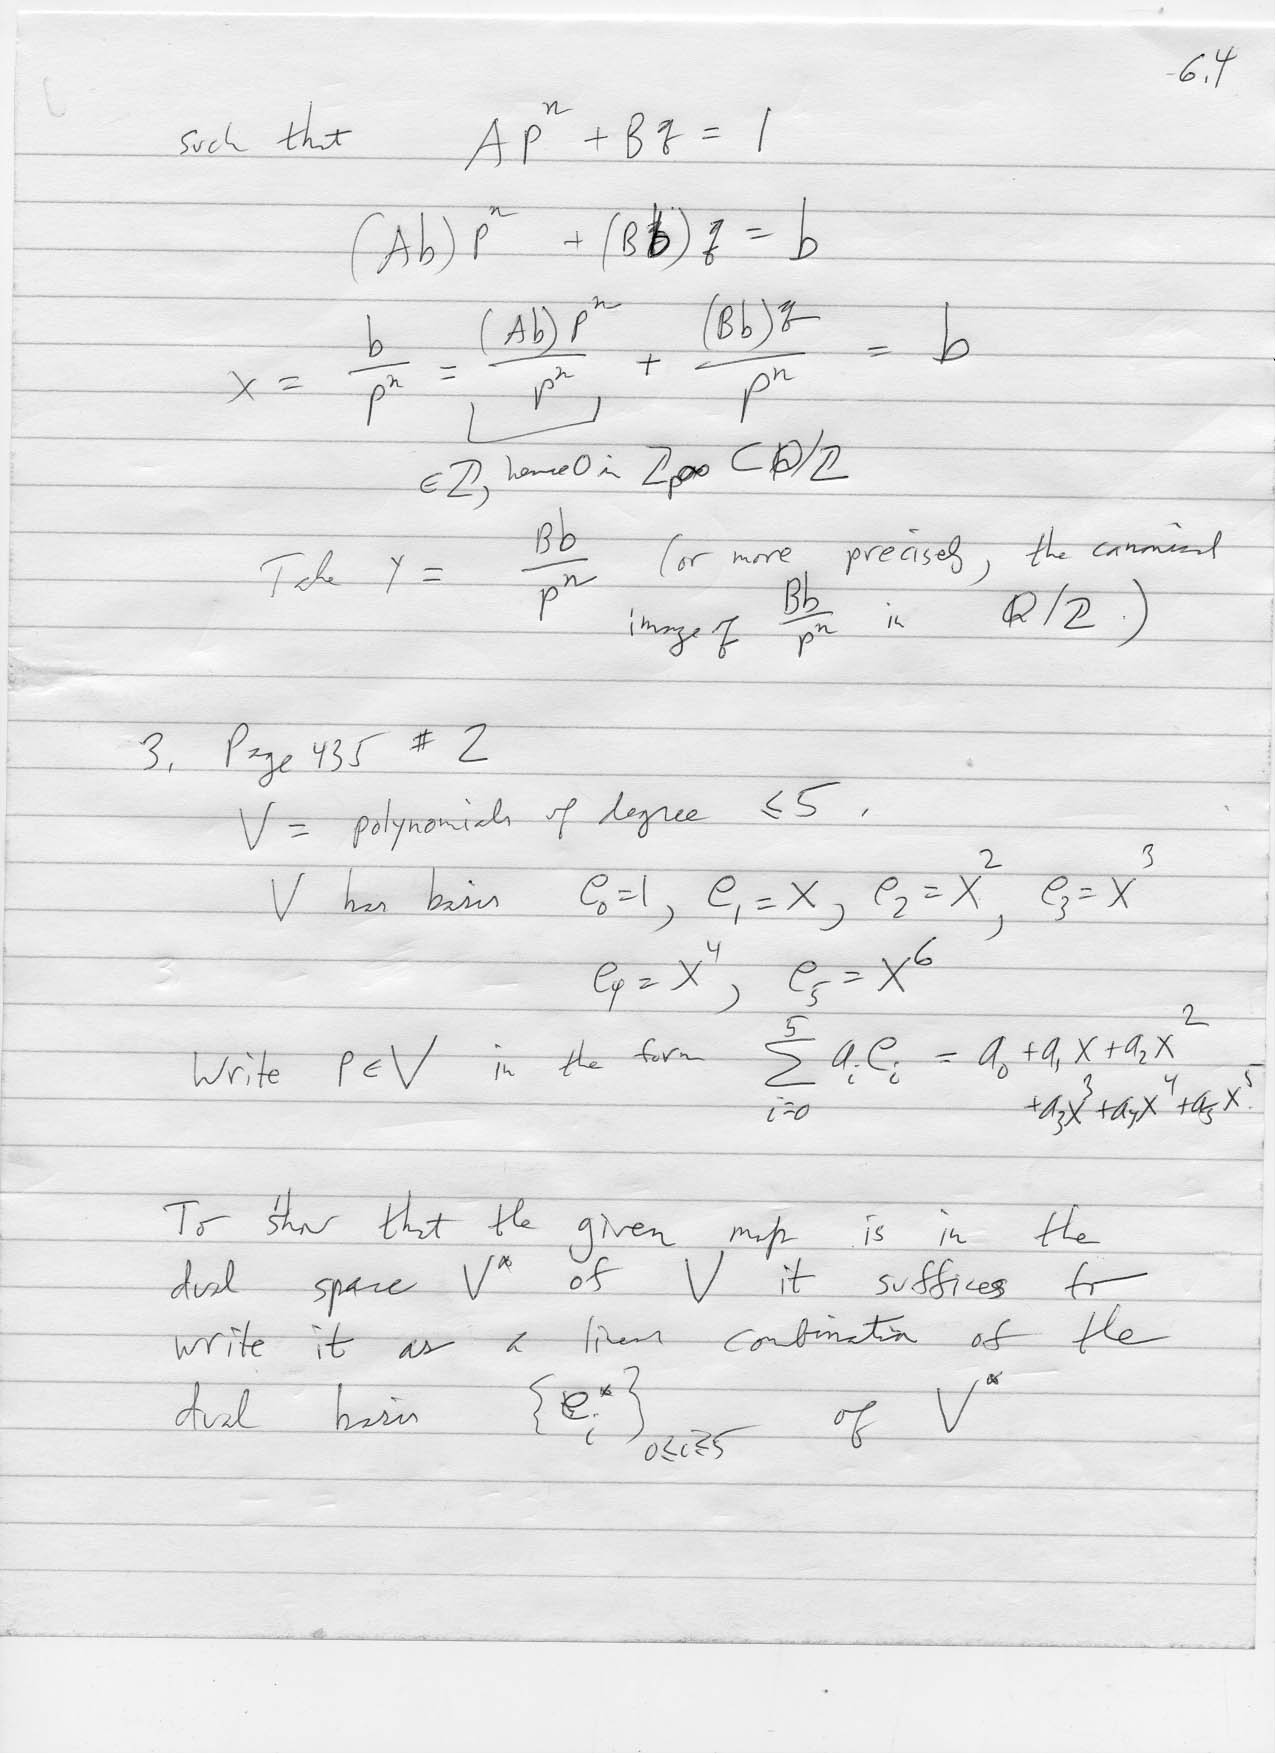 6.4
such that Ap^n + Bq = 1
(Ab)p^n + (Bb)q = b
x = b/p^n = (Ab)p^n/p^n + (Bb)q/p^n = b
∈ℤ, hence 0 in ℤ_p∞ ⊂ ℚ/ℤ
Take y = Bb/p^n (or more precisely, the canonical
image of Bb/p^n in ℚ/ℤ.)
3. Page 435 # 2
V = polynomials of degree ≤5.
V has basis e₀=1, e₁=x, e₂=x², e₃=x³
e₄=x⁴, e₅=x⁶
Write p∈V in the form ∑_{i=0}^{5} a_i e_i = a₀+a₁x+a₂x²
+a₃x³+a₄x⁴+a₅x⁵.
To show that the given map is in the
dual space V* of V it suffices to
write it as a linear combination of the
dual basis {e_i*}_{0≤i≥5} of V*